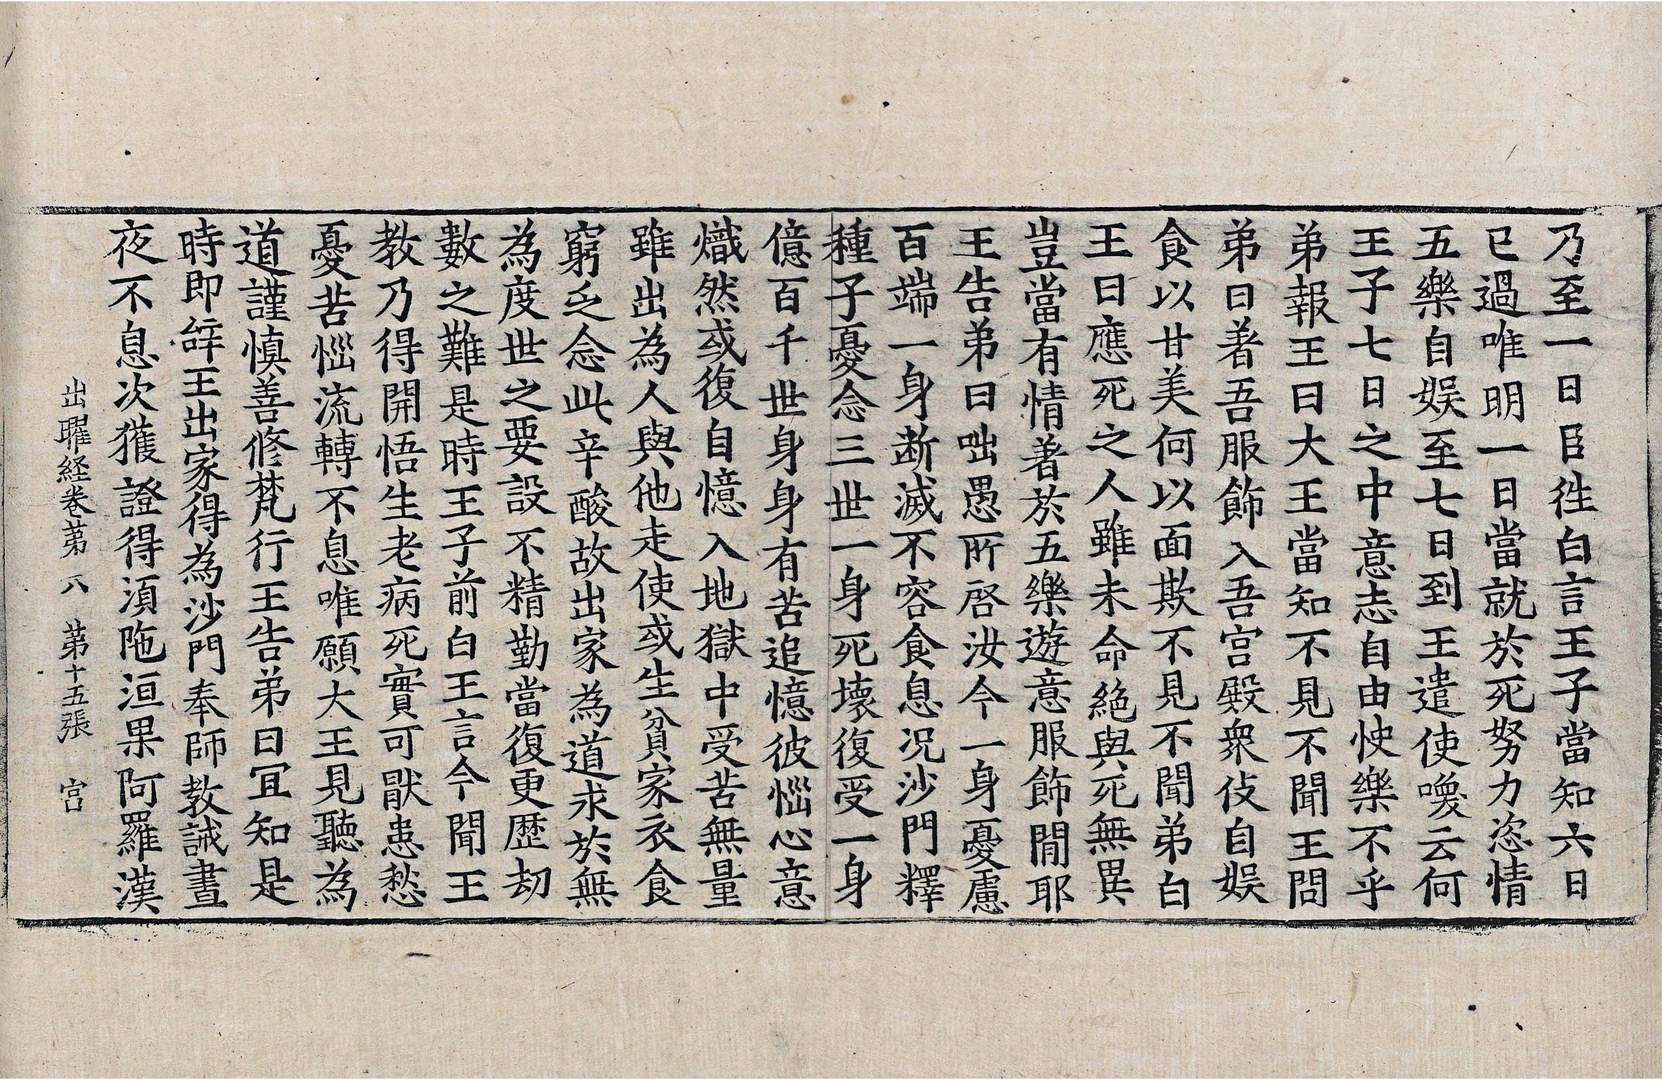 乃至一日臣徃白言王子當知六日
已過唯明一日當就於死努力恣情
五樂自娱至七日到王遣使喚云何
王子七日之中意志自由快樂不乎
弟報王曰大王當知不見不聞王問
弟曰著吾服飾入吾宮殿衆伎自娱
食以甘美何以面欺不見不聞弟白
王曰應死之人雖未命絕與死無異
豈當有情著於五樂遊意服飾間耶
王告弟曰咄愚所啓汝今一身憂慮
百端一身断滅不容食息况沙門釋
種子憂念三世一身死壊復受一身
億百千世身身有苦追憶彼惱心意
熾然或復自憶入地獄中受苦無量
雖出為人與他走使或生貧家衣食
窮乏念此辛酸故出家為道求於無
為度世之要設不精勤當復更歷劫
數之難是時王子前白王言今聞王
教乃得開悟生老病死實可猒患愁
憂苦惱流轉不息唯願大王見聽為
道謹慎善修梵行王告弟曰冝知是
時即辝王出家得為沙門奉師教誡晝
夜不息次獲證得湏陁洹果阿羅漢
出曜経卷苐八 苐十五張 宫